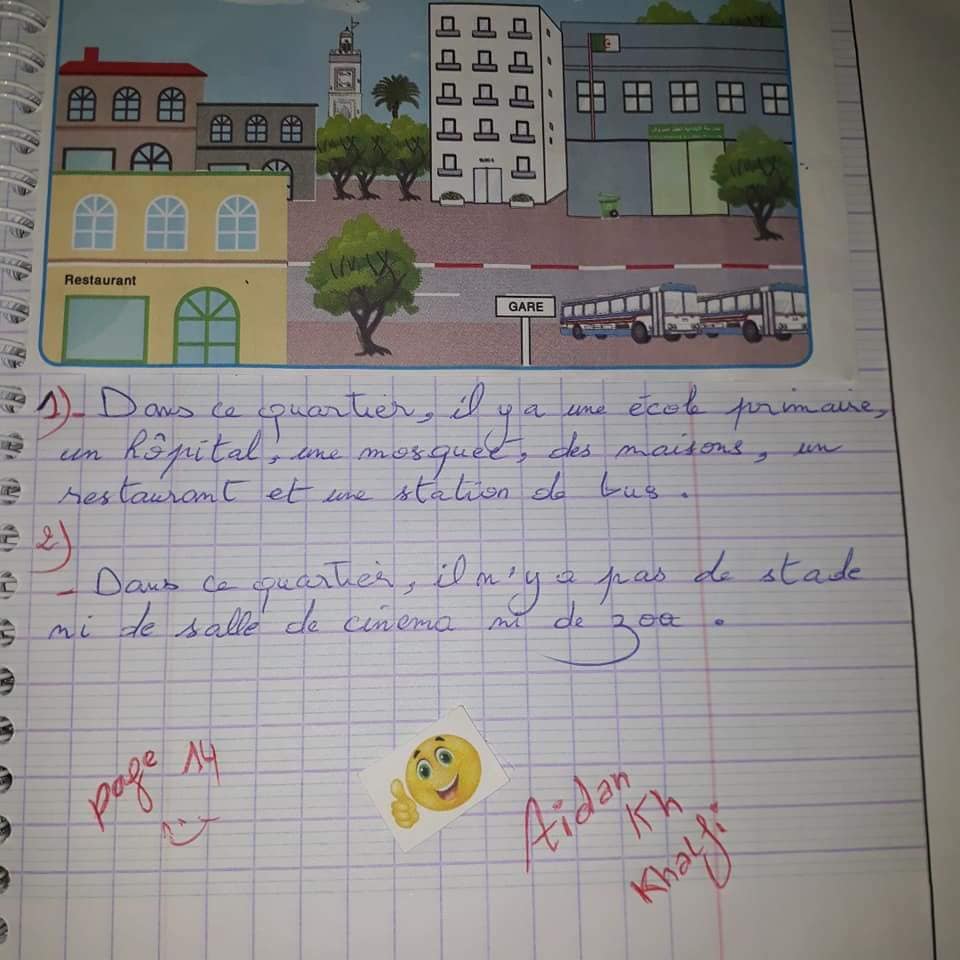 Restaurant
GARE
1)- Dans ce quartier, il y a une école primaire,
un hôpital, une mosquée, des maisons, un
restaurant et une station de bus.
2)
- Dans ce quartier, il n'y a pas de stade
ni de salle de cinema ni de zoo.
page 14
Aidan
Kh
Khalfi